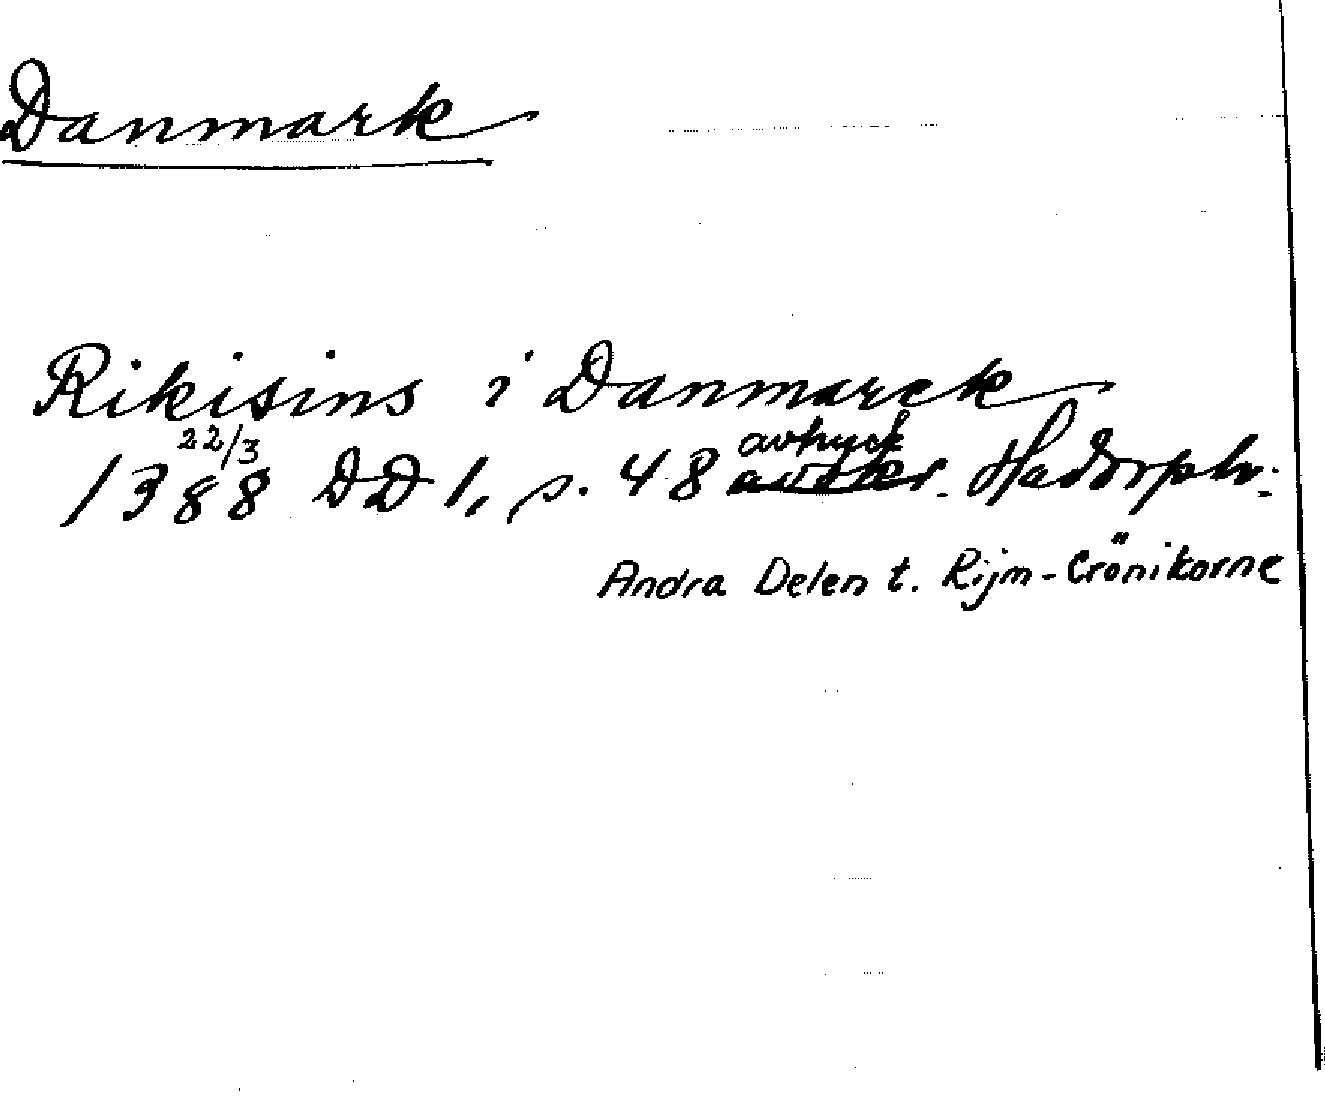 Danmark
Rikisins i Danmarck
22/3
avtryck
1388 DD 1, s. 48 Hadorph.
Andra Delen t. Rijm-Crönikorne